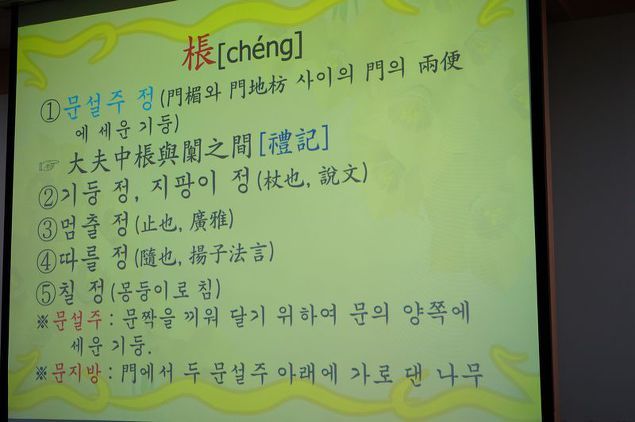 棖[chéng]
①문설주 정(門楣와 門地枋 사이의 門의 兩便
에 세운 기둥)
☞ 大夫中棖與闑之間[禮記]
②기둥 정, 지팡이 정(杖也, 說文)
③멈출 정(止也, 廣雅)
④따를 정(隨也, 揚子法言)
⑤칠 정(몽둥이로 침)
※문설주 : 문짝을 끼워 달기 위하여 문의 양쪽에
세운 기둥.
※문지방 : 門에서 두 문설주 아래에 가로 댄 나무